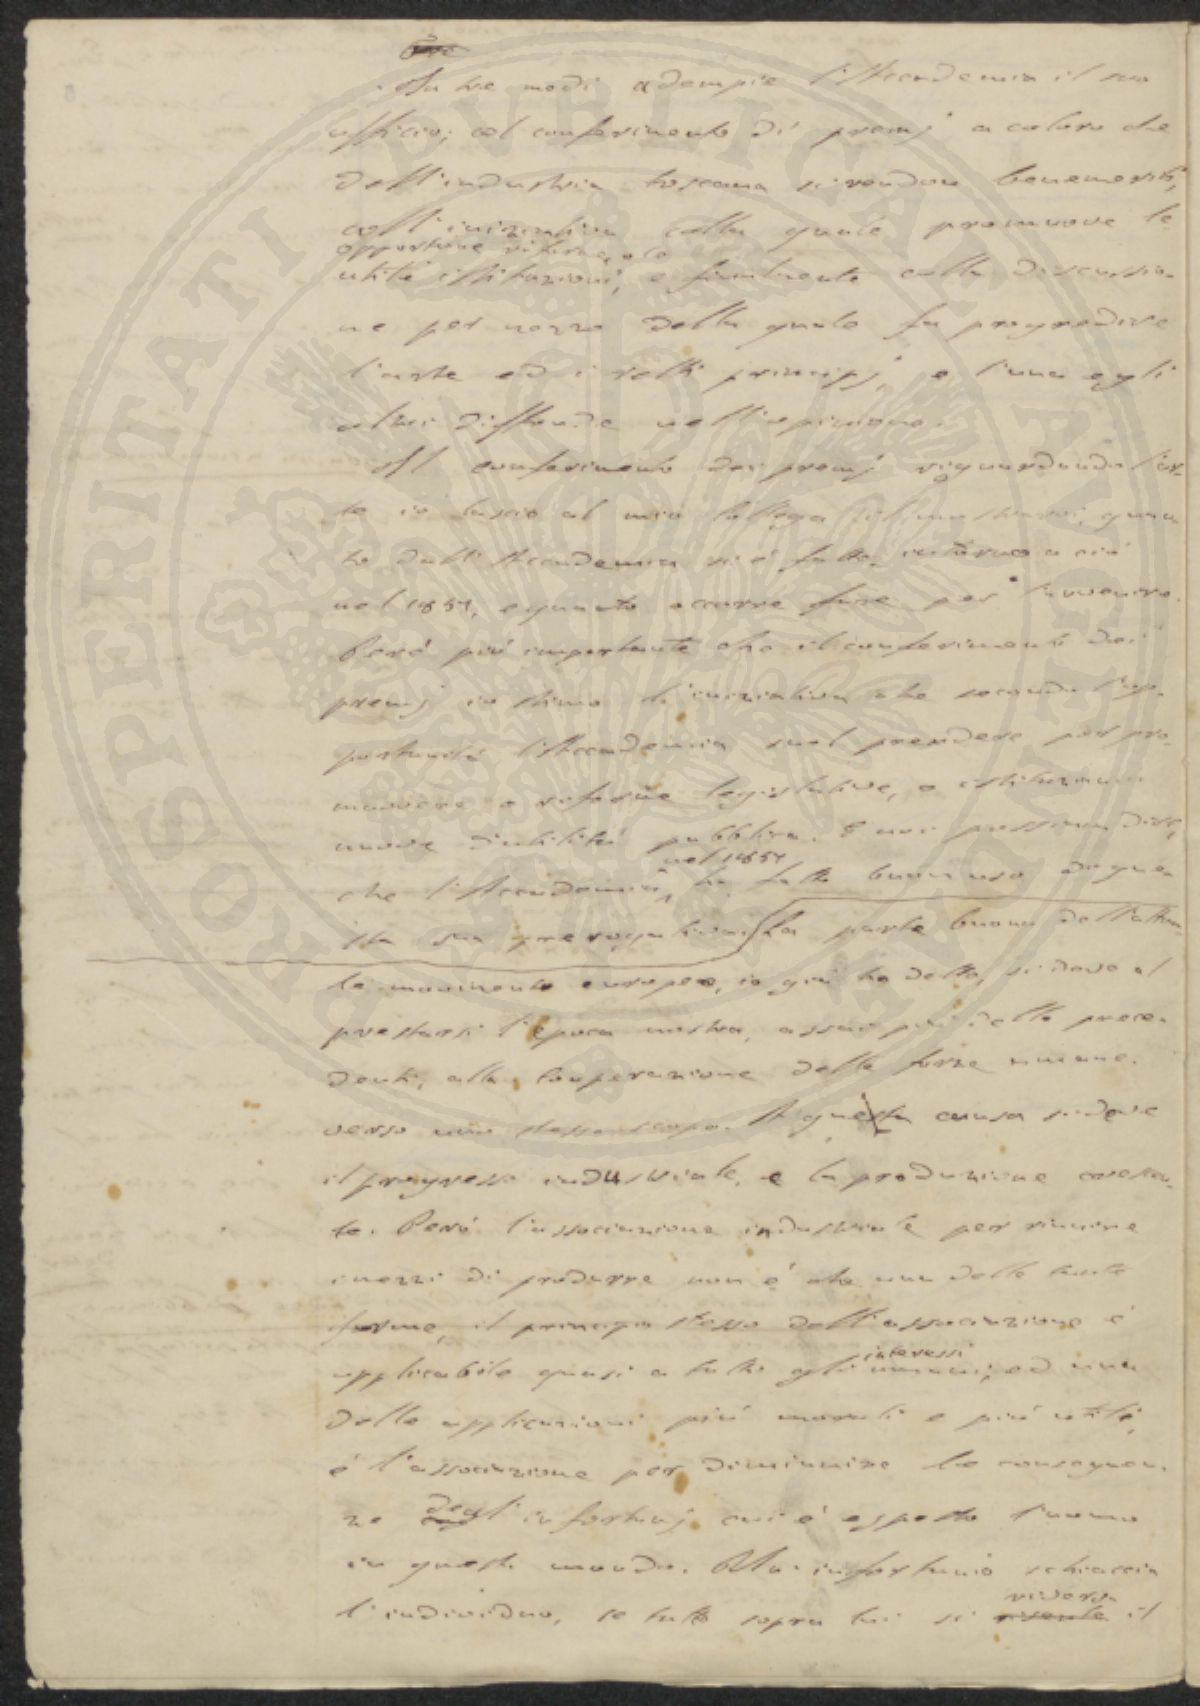 In tre modi adempie l'Accademia il suo
ufficio; col conferimento di premj a coloro che
dell'industria toscana si rendon benemeriti,
coll'iniziativa colla quale promuove le
opportune riforme, o le
utili istituzioni, e finalmente colla discussio-
ne per mezzo della quale fa progredire
l'arte ed i retti principj, e l'una e gli
altri diffonde nell'opinione.
Il conferimento dei premj riguardando l'ar-
te io lascio al mio Collega il quan-
to dall'Accademia si è fatto intorno a ciò
nel 1857, e quanto occorre fare per l'avvenire.
Però più importante che il conferimento dei
premj io stimo l'iniziativa che secondo l'op-
portunità l'Accademia suol prendere per pro-
muovere o riforme legislative, o istituzioni
nuove d'utilità pubblica. E noi possiam dire,
che l'Accademia nel 1857 ha fatto buon uso di que-
sta sua prerogativa. La parte buona dell'attua-
le movimento europeo, io già ho detto, si deve al
prestarsi l'epoca nostra, assai più delle prece-
denti, alla cooperazione delle forze umane
verso uno stesso scopo. A questa causa si deve
il progresso industriale, e la produzione cresciu-
ta. Però l'associazione industriale per riunire
mezzi di produrre non è che una delle tante
forme, il principio stesso dell'associazione è
applicabile quasi a tutti gli interessi umani; ed una
delle applicazioni più morali e più utili,
è l'associazione per diminuire le conseguen-
ze degl'infortunj cui è esposto l'uomo
in questo mondo. Un infortunio schiaccia
l'individuo, se tutto sopra lui si riversa il